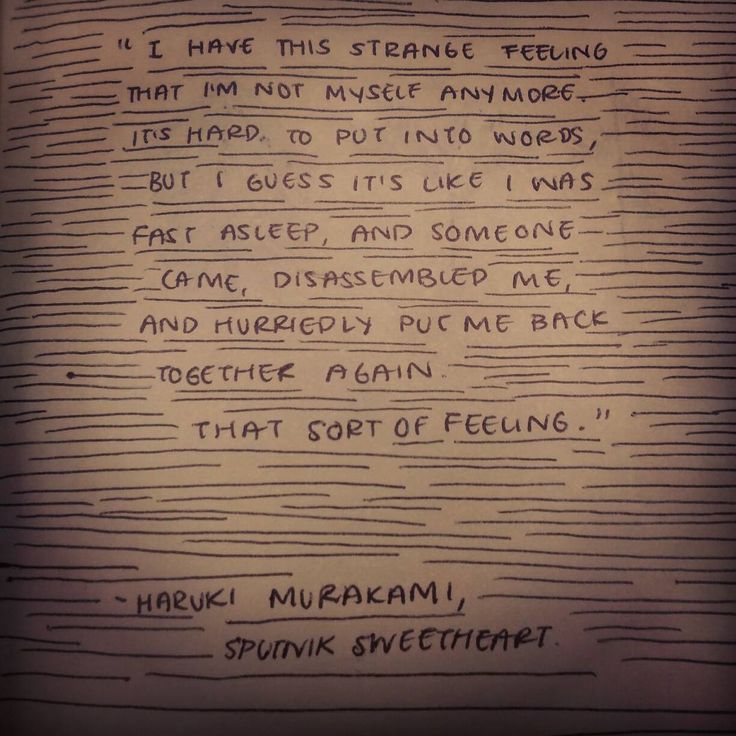 "I HAVE THIS STRANGE FEELING
THAT I'M NOT MYSELF ANYMORE.
IT'S HARD TO PUT INTO WORDS,
BUT I GUESS IT'S LIKE I WAS
FAST ASLEEP, AND SOMEONE
CAME, DISASSEMBLED ME,
AND HURRIEDLY PUT ME BACK
TOGETHER AGAIN.
THAT SORT OF FEELING."
- HARUKI MURAKAMI,
SPUTNIK SWEETHEART.